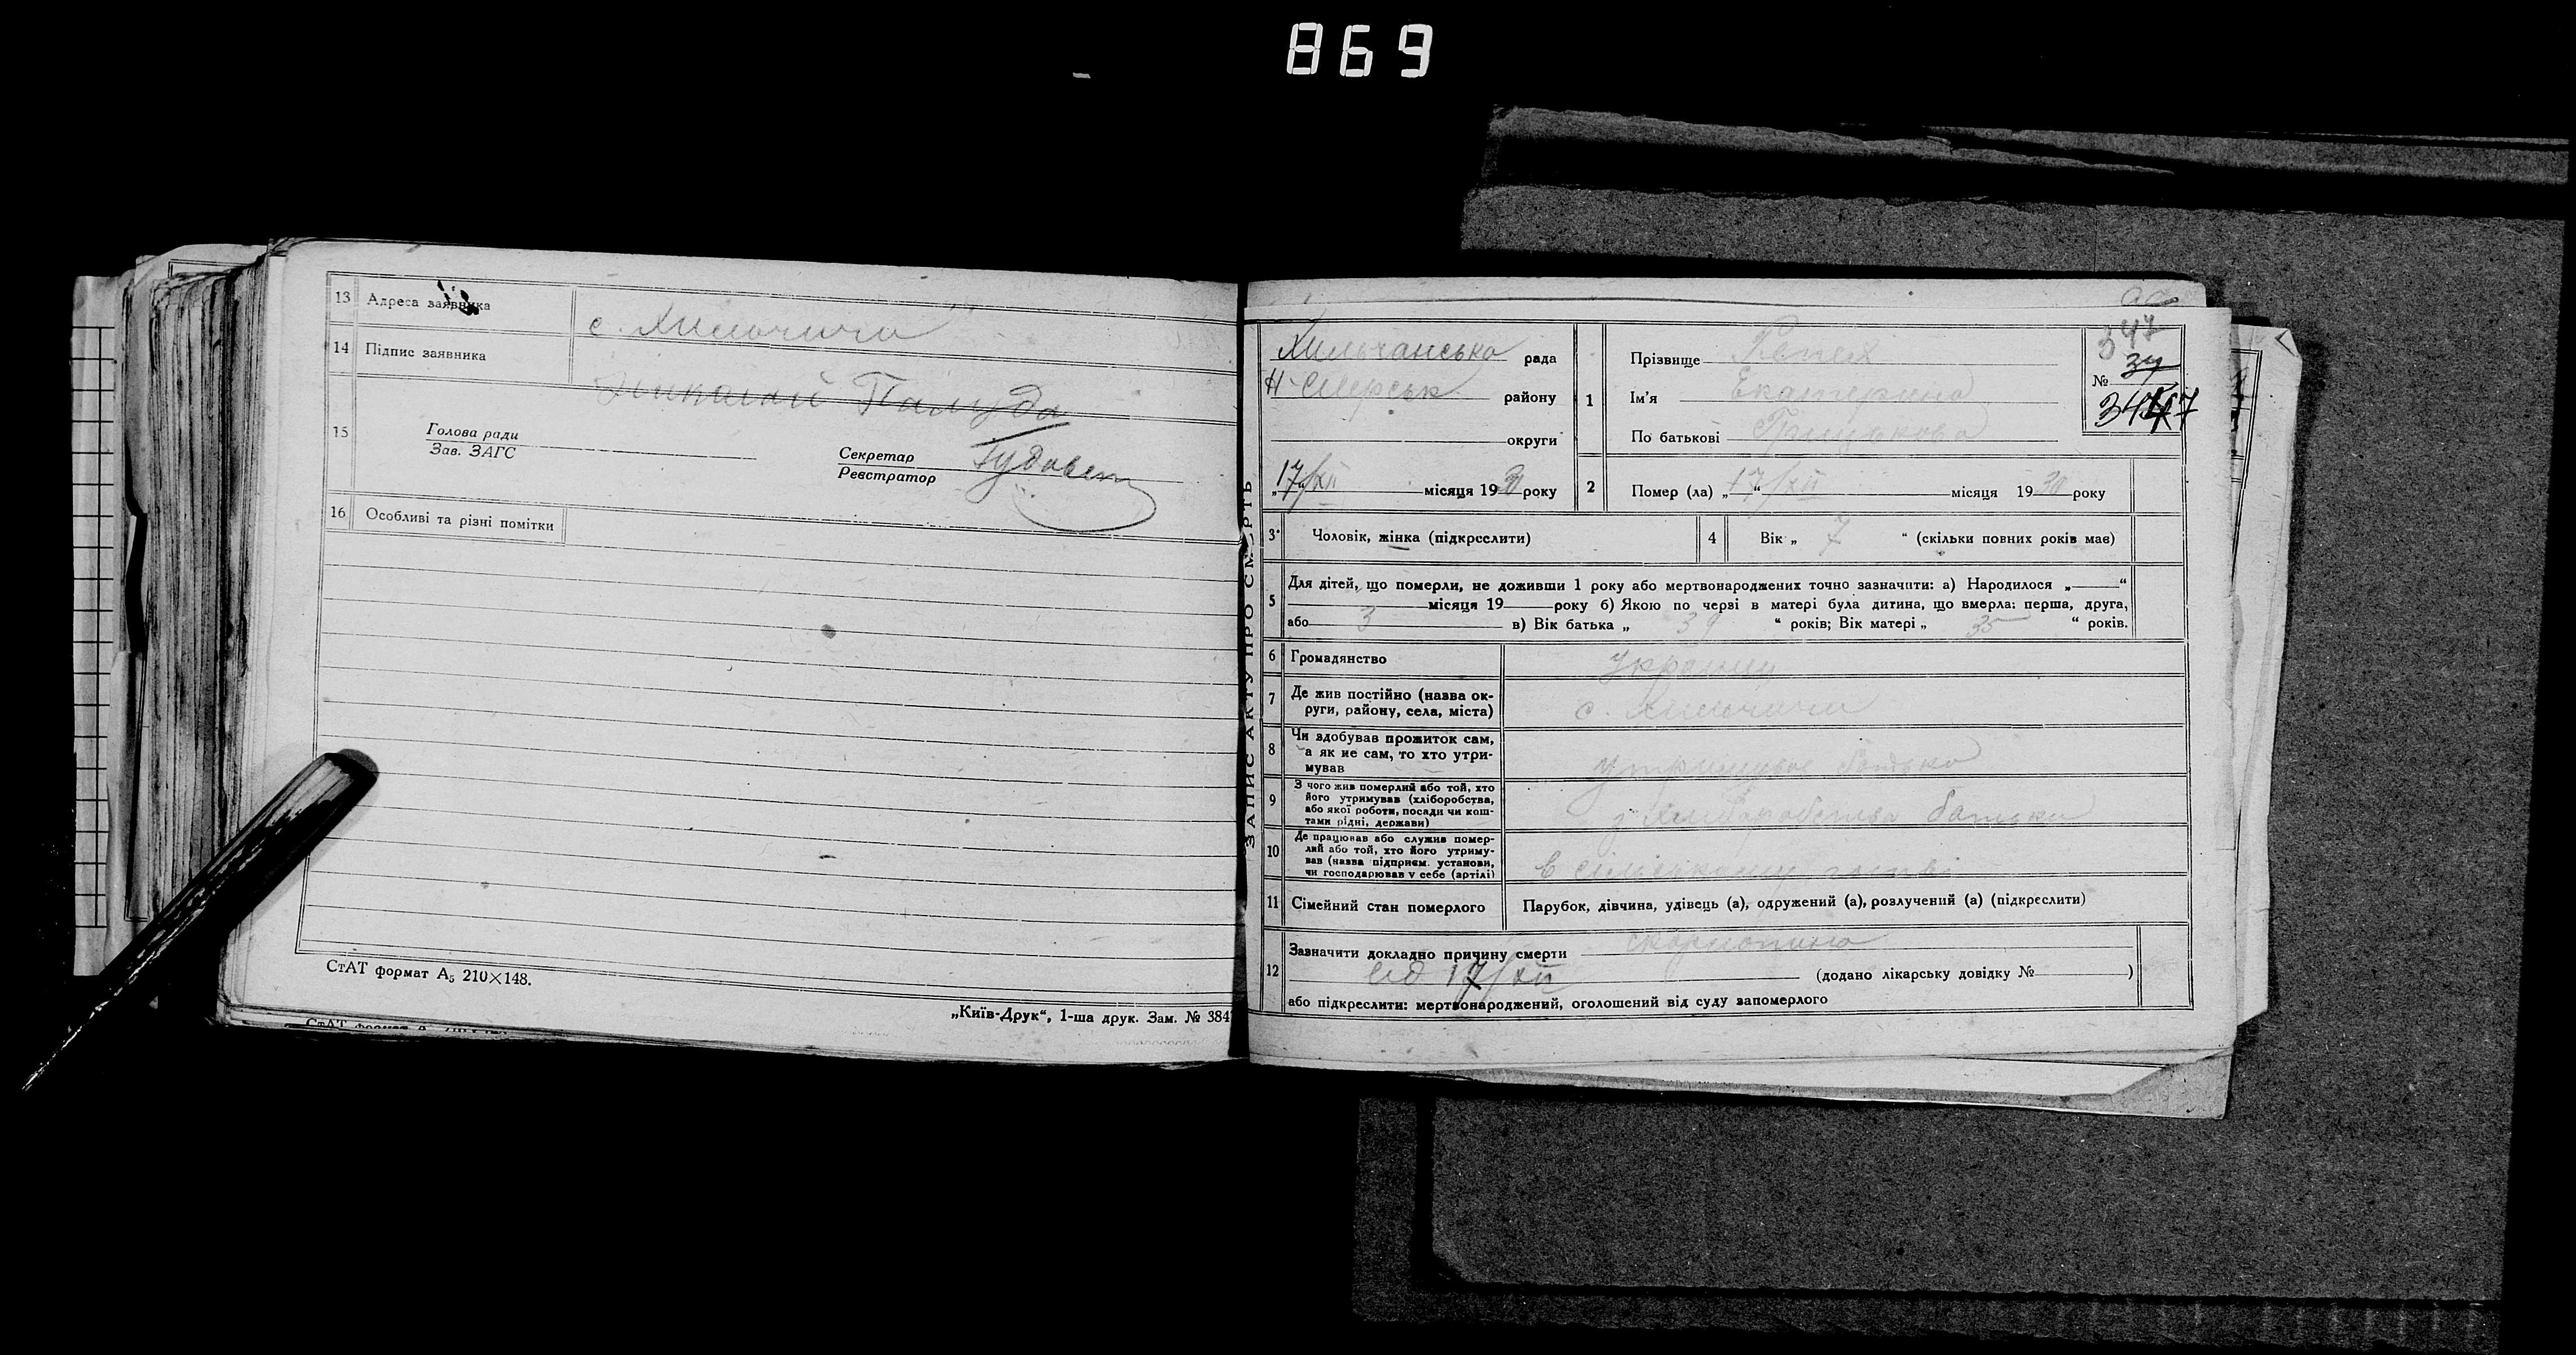 869
13 Адреса заявника
с. Хильчичи
14 Підпис заявника
Палуда
15 Голова ради
Зав. ЗАГС
Секретар
Реєстратор
Гудовен
16 Особливі та різні помітки
СтАТ формат А5 210×148.
„Київ-Друк“, 1-ша друк. Зам. № 384
СтАТ формат А
ЗАПИС АКТУ ПРО СМЕРТЬ
Хильчанська рада
Н-Сіверськ району
округи
„17/XII місяця 1930 року
1
Прізвище Репех
Ім'я Екатерина
По батькові Грицькова
347
№ 34
347
2 Помер (ла) „17/XII“ місяця 1930 року
3 Чоловік, жінка (підкреслити)
4 Вік „ 7 “ (скільки повних років має)
5 Для дітей, що померли, не доживши 1 року або мертвонароджених точно зазначити: а) Народилося „ “
місяця 19 року б) Якою по черві в матері була дитина, що вмерла: перша, друга,
або 3 в) Вік батька „ 39 “ років; Вік матері „ 35 “ років.
6 Громадянство
україни
7 Де жив постійно (назва округи, району, села, міста)
с. Хильчичи
8 Чи здобував прожиток сам,
а як не сам, то хто утри-
мував
утримував батько
9 З чого жив померлий або той, хто
його утримував (хліборобства,
або якої роботи, посади чи кош-
тами рідні, держави)
з хліборобства батька
10 Де працював або служив помер-
лий або той, хто його утриму-
вав (назва підприєм. установи,
чи господарював у себе (артілі)
в сільському
11 Сімейний стан померлого
Парубок, дівчина, удівець (а), одружений (а), розлучений (а) (підкреслити)
12 Зазначити докладно причину смерти скарлатина
від 17/XII (додано лікарську довідку № )
або підкреслити: мертвонароджений, оголошений від суду запомерлого